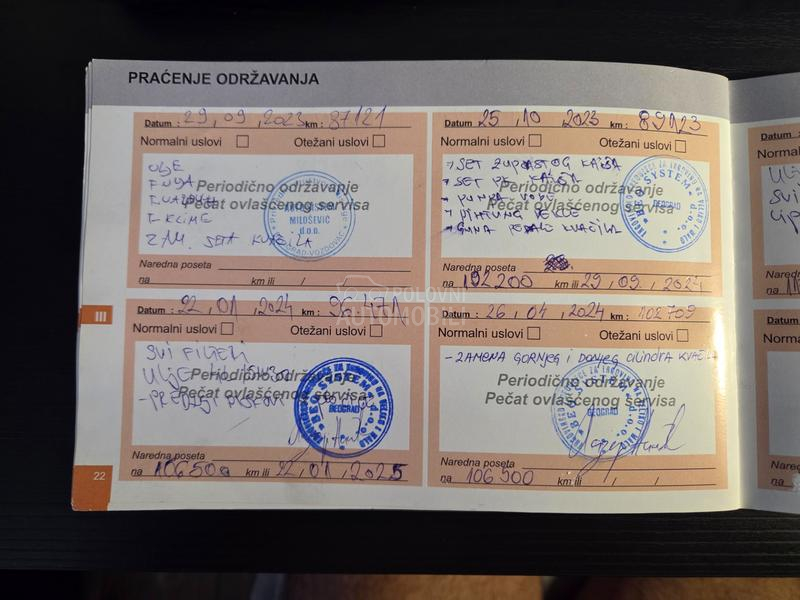 PRAĆENJE ODRŽAVANJA
Datum : 29 , 09 , 2023 km : 87121
Normalni uslovi Otežani uslovi
ULJE
F. ULJA
F. VAZDUHA
F. KLIME
ZAM. SETA KVAČILA
Periodično održavanje
Pečat ovlašćenog servisa
MILOŠEVIĆ
d.o.o.
Naredna poseta
na km ili / /
Datum : 25 , 10 2023 km : 89123
Normalni uslovi Otežani uslovi
SET ZUPČASTOG KAIŠA
SET PK KAIŠA
PUMPA VODE
GUMA PEDALE KVAČILA
Periodično održavanje
Pečat ovlašćenog servisa
BEO SYSTEM d.o.o.
BEOGRAD
Naredna poseta
na 102.200 km ili 29 , 09 , 2024
III
Datum : 22 , 01 , 2024 km : 96.471
Normalni uslovi Otežani uslovi
SVI FILTERI
ULJE
Periodično održavanje
Pečat ovlašćenog servisa
BEO SYSTEM d.o.o.
BEOGRAD
Naredna poseta
na 106500 km ili 22 , 01 , 2025
Datum : 26 , 04 , 2024 km : 102709
Normalni uslovi Otežani uslovi
- ZAMENA GORNJEG I DONJEG CILINDRA KVAČILA
Periodično održavanje
Pečat ovlašćenog servisa
BEO SYSTEM d.o.o.
BEOGRAD
Naredna poseta
na 106500 km ili / /
22
POLOVNI
AUTOMOBILI
Datum
Normalni
na
Datum :
Normalni
Na
na